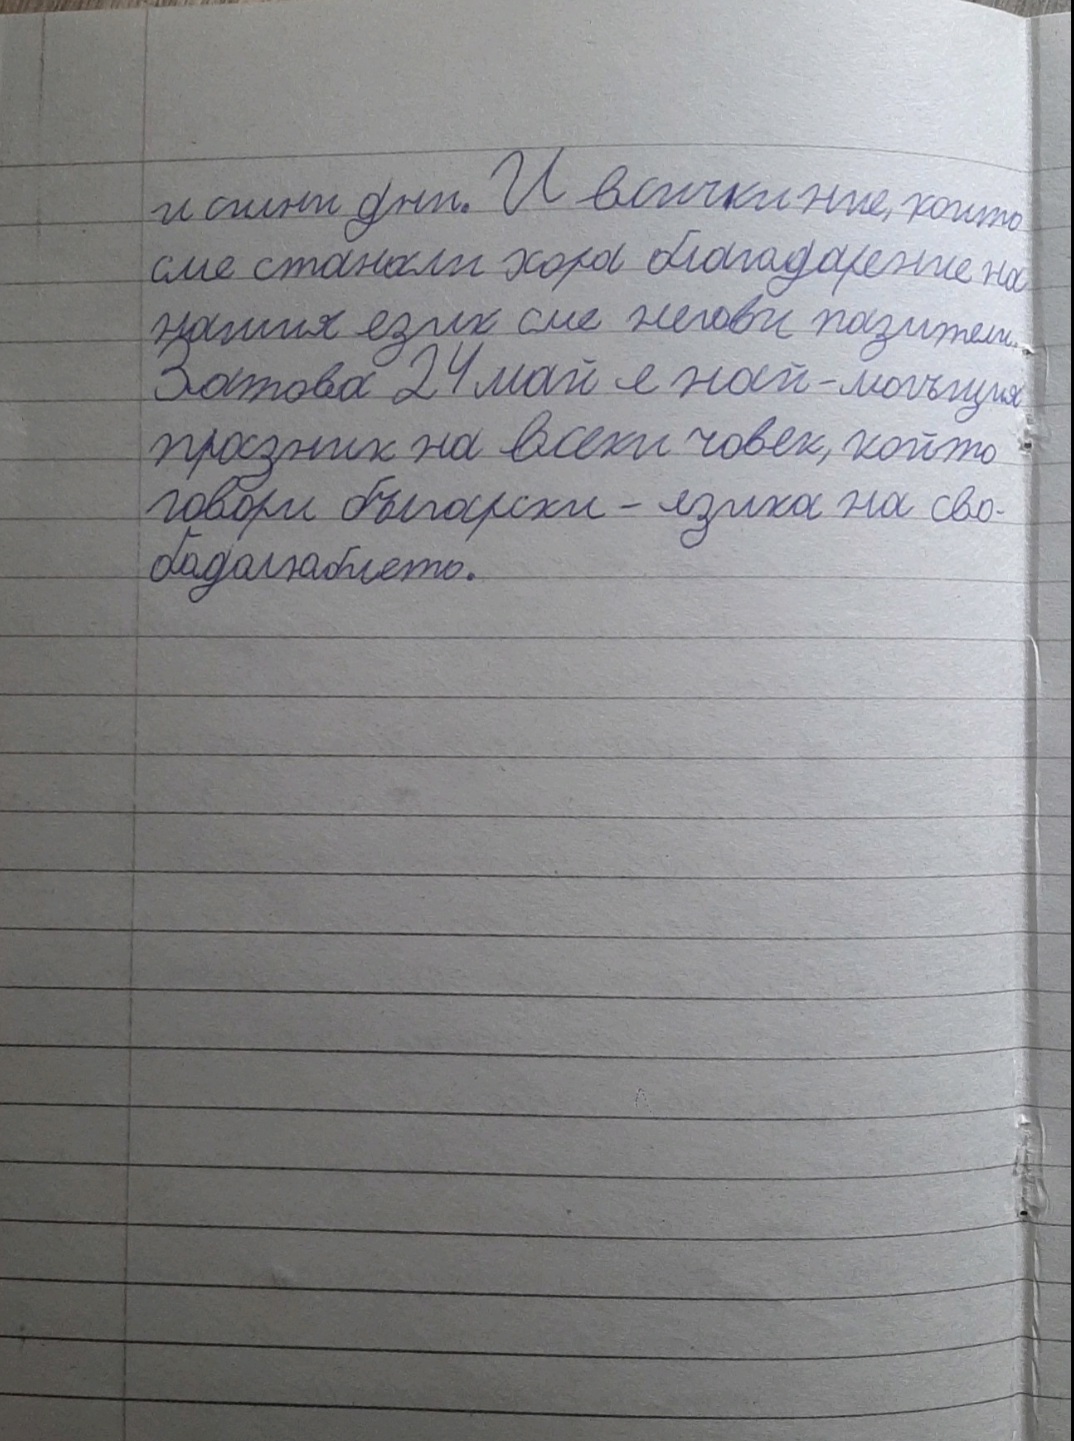 и силни дни. И всички ние, които
сме станали хора благадарение на
нашия език сме негови пазители.
Затова 24 май е най-могъщия
празник на всеки човек, който
говори български - езика на сво-
бадалюбието.